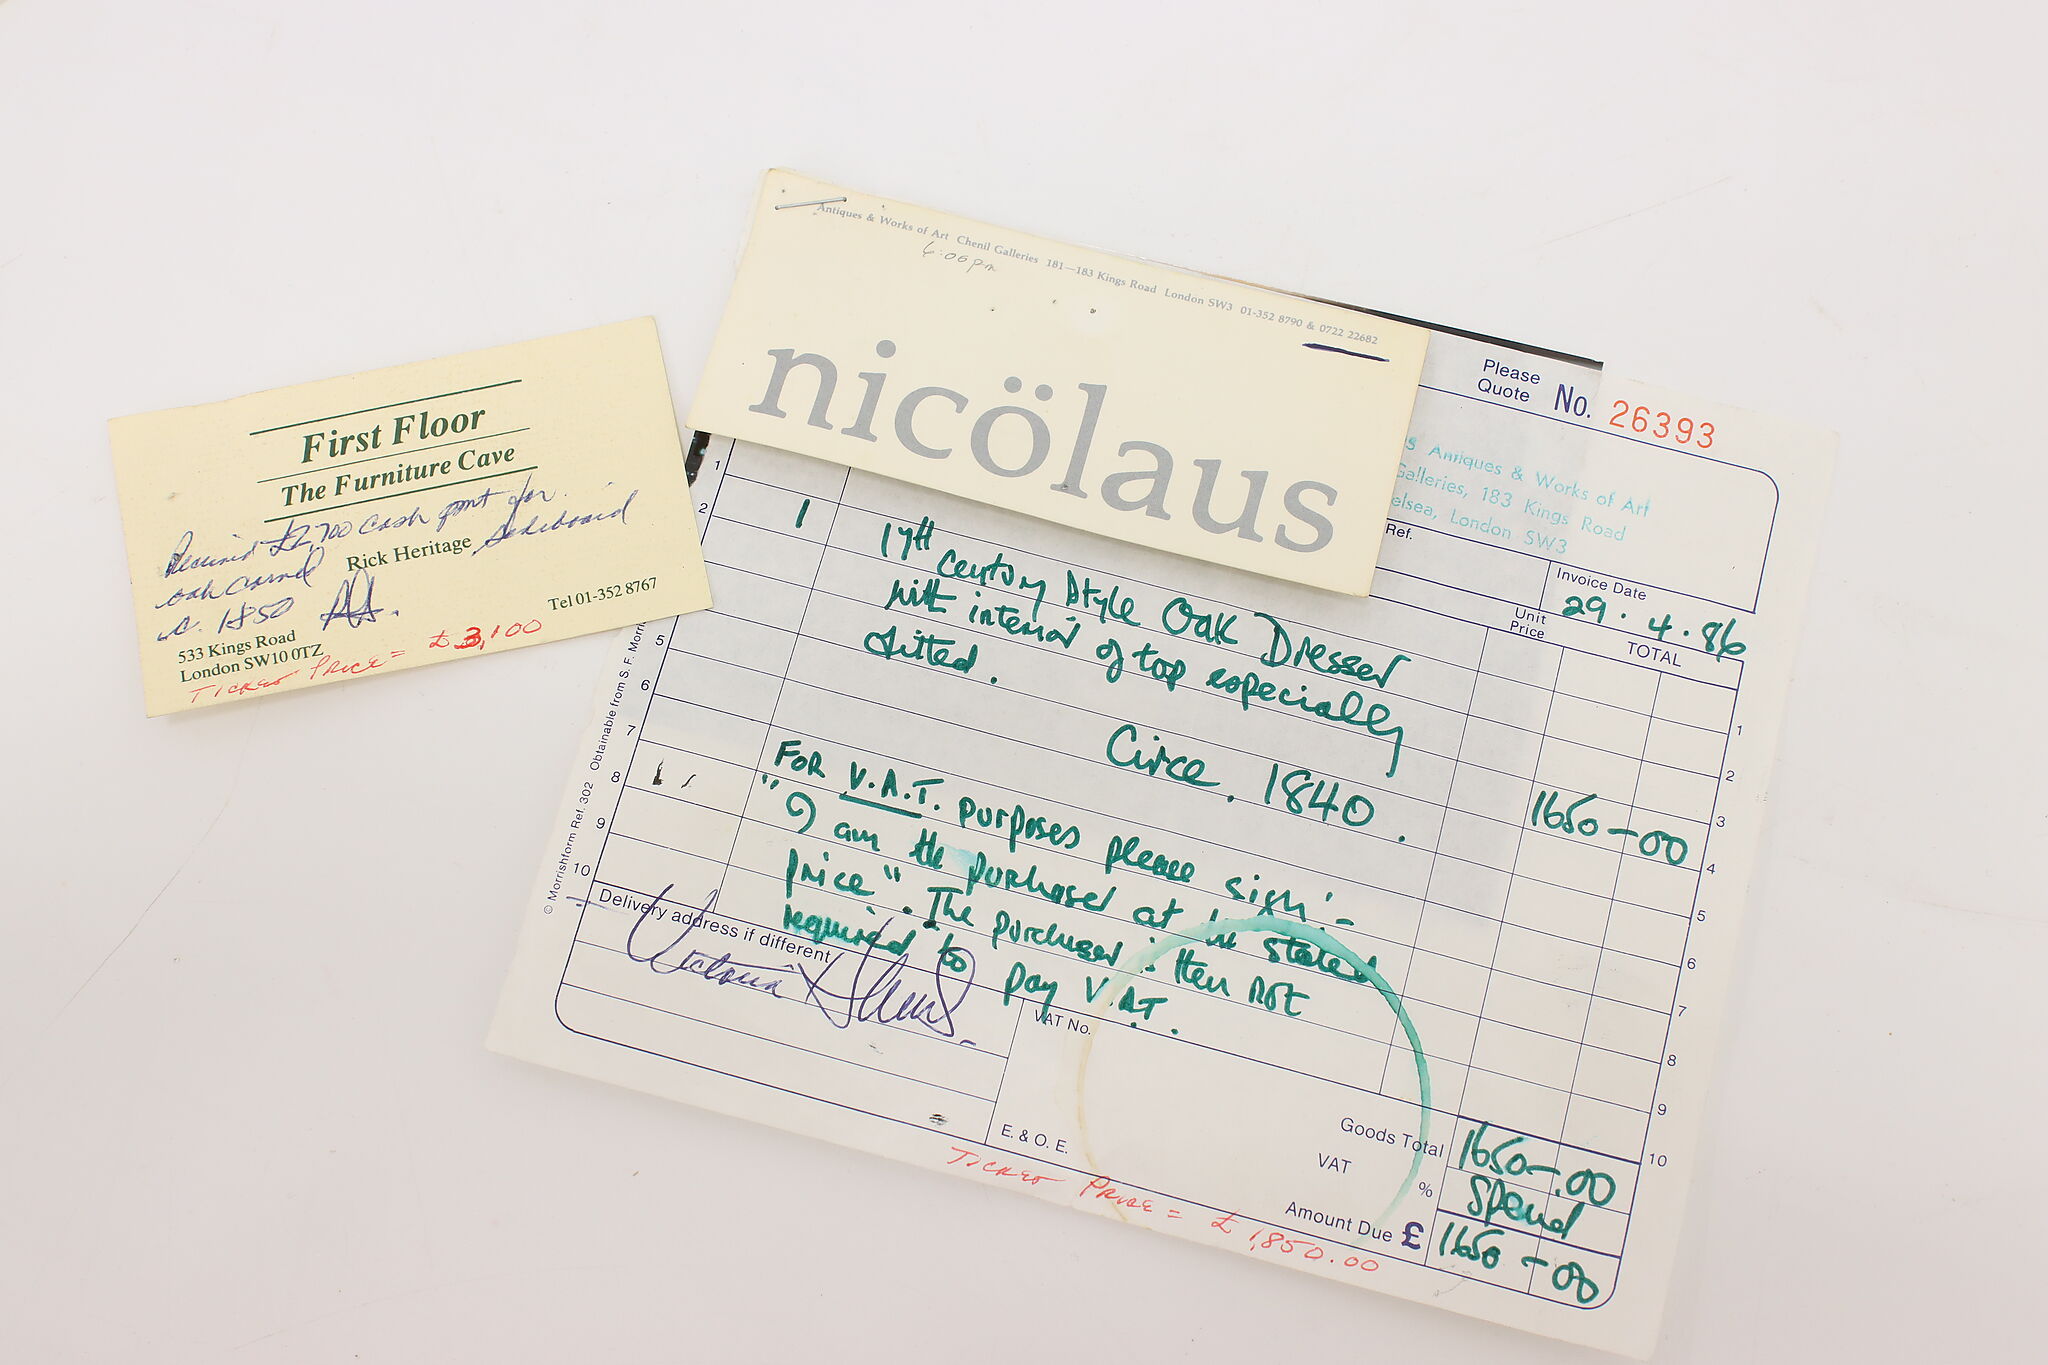 First Floor
The Furniture Cave
Received £2,700 cash pmt for
oak carved Rick Heritage Sideboard
c. 1850
Tel 01-352 8767
533 Kings Road
London SW10 0TZ
TICKET PRICE = £3,100
Antiques & Works of Art Chenil Galleries 181—183 Kings Road London SW3 01-352 8790 & 0722 22682
6:06pm
nicölaus
Please Quote No. 26393
s Antiques & Works of Art
Galleries, 183 Kings Road
elsea, London SW3
Ref.
Invoice Date
29.4.86
Unit Price
TOTAL
1
2
5
6
7
8
9
10
1 17th Century Style Oak Dresser
with interior of top especially
fitted.
Circe. 1840. 1650-00
FOR V.A.T. purposes please sign:-
"I am the purchaser at the stated
price". The purchaser is then NOT
required to pay V.A.T.
1
2
3
4
5
6
7
8
9
10
Delivery address if different
Victoria
VAT No.
E. & O. E.
Goods Total 1650-.00
VAT % Spend
Amount Due £ 1650-00
TICKET PRICE = £1,850.00
© Morrishform Ref. 302 Obtainable from S. F. Morri